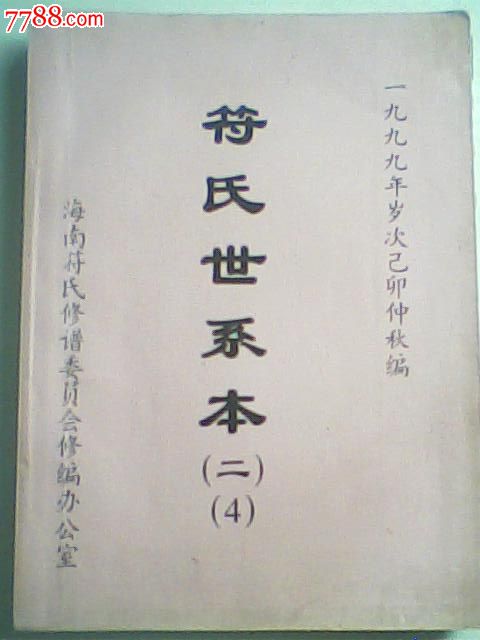 7788.com
一九九九年岁次己卯仲秋编
符氏世系本
(二)
(4)
海南符氏修谱委员会修编办公室